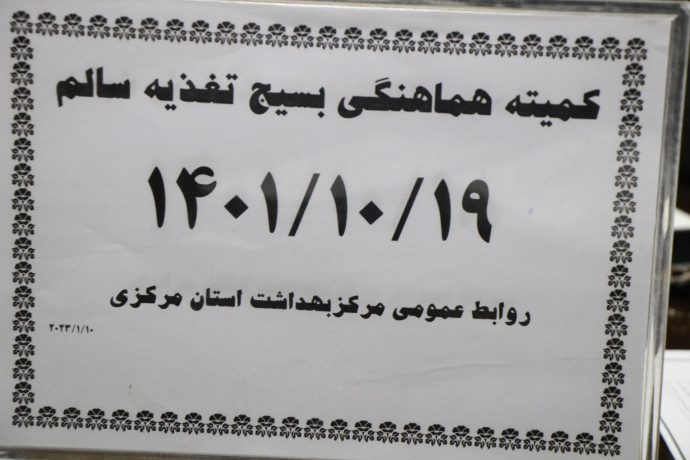 کمیته هماهنگی بسیج تغذیه سالم
۱۴۰۱/۱۰/۱۹
روابط عمومی مرکزبهداشت استان مرکزی
۲۰۲۳/۱/۱۰